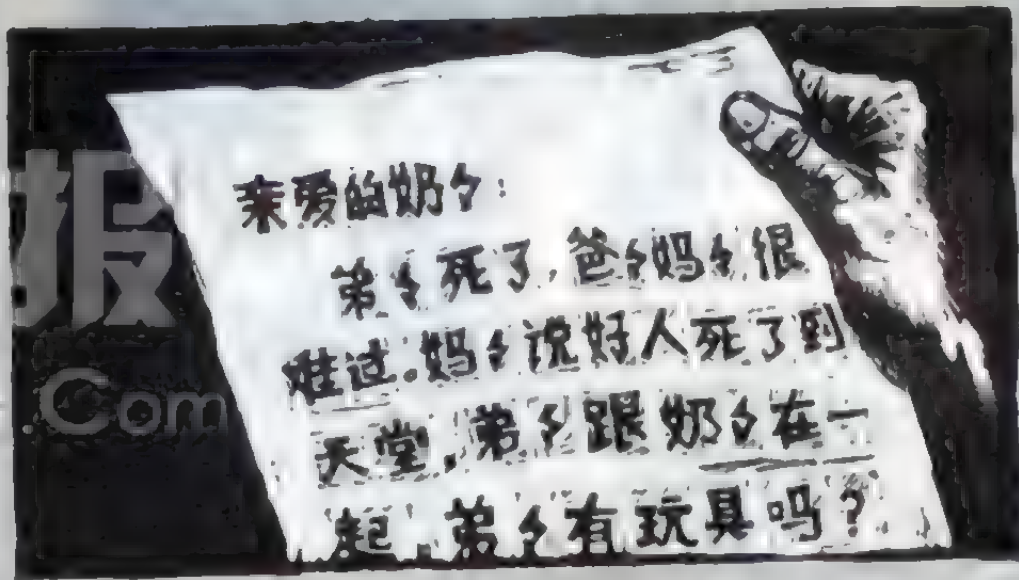 亲爱的奶々:
弟々死了,爸々妈々很
难过。妈々说好人死了到
天堂,弟々跟奶々在一
起,弟々有玩具吗?
报
.Com